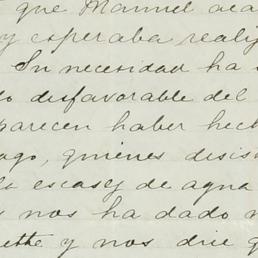 que Manuel aca
y esperaba reali
Su necesidad ha
do desfavorable del
parecen haber hech
ago, quienes desis
la escasez de agua
s nos ha dado
ette y nos dice q